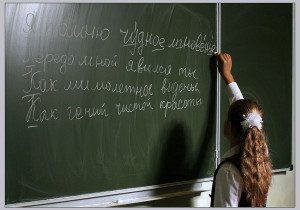 Я помню чудное мгновенье
Передо мной явился ты
Как мимолетное виденье
Как гений чистой красоты